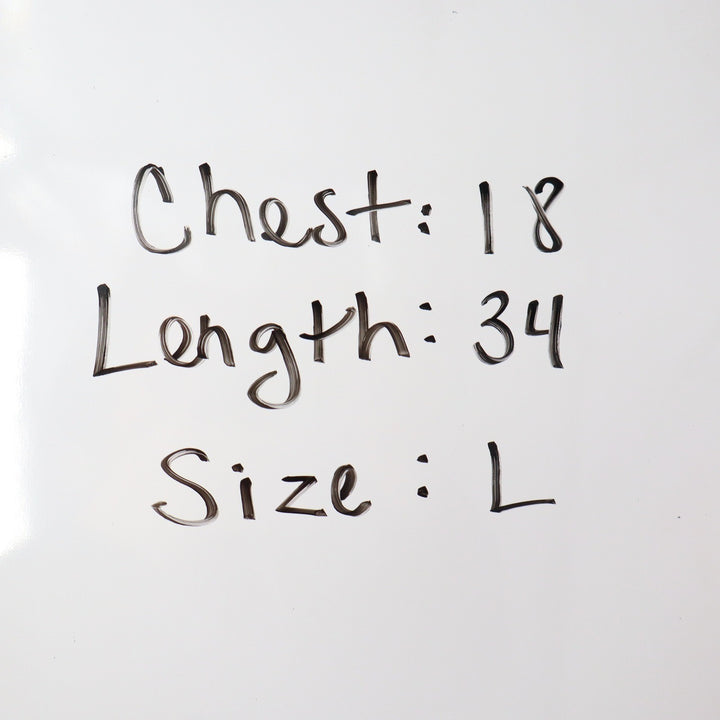 Chest: 18
Length: 34
Size: L